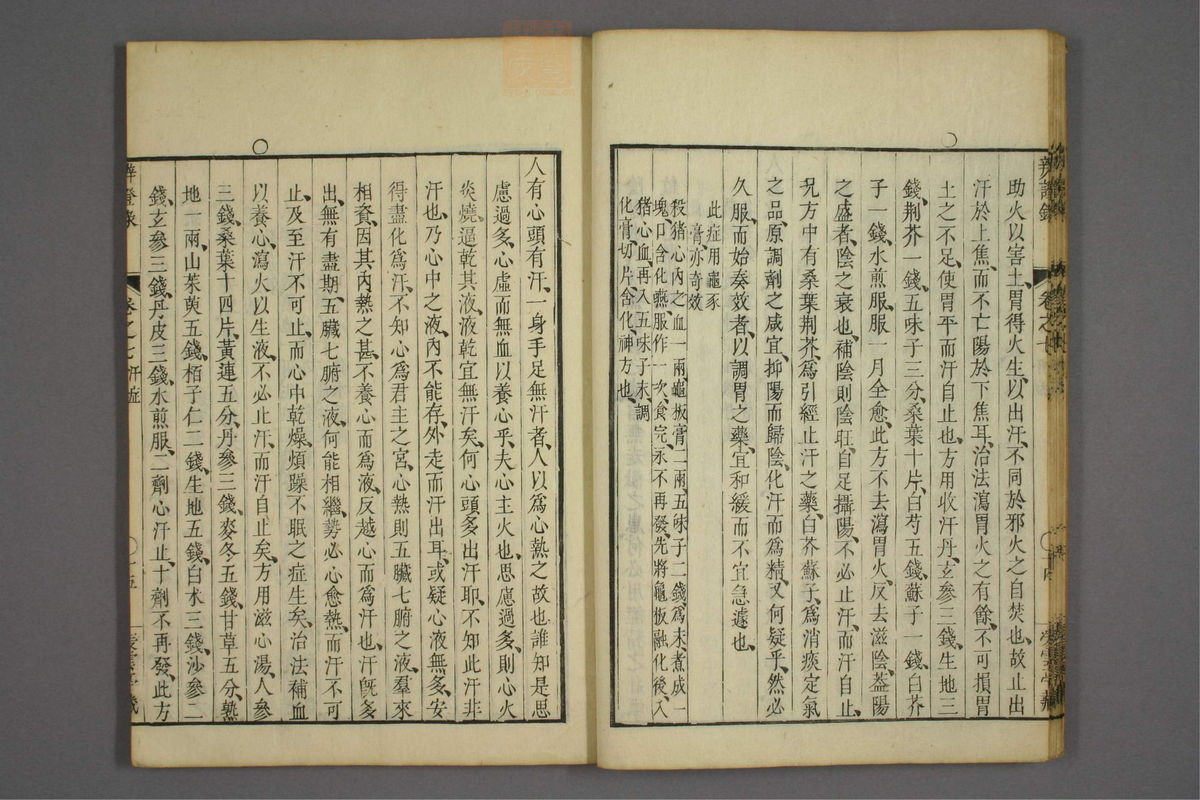 助火以害土、胃得火生、以出汗、不同於邪火之自焚也、故止出
汗於上焦、而不亡陽於下焦耳、治法瀉胃火之有餘、不可損胃
土之不足、使胃平而汗自止也、方用收汗丹、玄參三錢、生地三
錢、荆芥一錢、五味子三分、桑葉十片、白芍五錢、蘇子一錢、白芥
子一錢、水煎服、服一月全愈、此方不去瀉胃火、反去滋陰、葢陽
之盛者、陰之衰也、補陰則陰旺、自足攝陽、不必止汗、而汗自止、
况方中有桑葉荆芥、爲引經止汗之藥、白芥蘇子、爲消痰定氣
之品、原調劑之咸宜、抑陽而歸陰、化汗而爲精、又何疑乎、然必
久服、而始奏效者、以調胃之藥、宜和緩而不宜急遽也、
此症用龜豕
膏、亦奇效
殺猪心內之血一兩、龜板膏二兩、五味子二錢、爲末、煮成一
塊、口含化嚥、服作一次、食完、永不再發、先將龜板融化後、入
猪心血、再入五味子末、調
化膏、切片、含化、神方也、
人有心頭有汗、一身手足無汗者、人以爲心熱之故也、誰知是思
慮過多、心虛而無血以養心乎、夫心主火也、思慮過多、則心火
炎燒、逼乾其液、液乾宜無汗矣、何心頭多出汗耶、不知此汗非
汗也、乃心中之液、內不能存、外走而汗出耳、或疑心液無多、安
得盡化爲汗、不知心爲君主之宮、心熱則五臟七腑之液、羣來
相資、因其內熱之甚、不養心而爲液、反越心而爲汗也、汗旣多
出、無有盡期、五臟七腑之液、何能相繼、勢必心愈熱、而汗不可
止、及至汗不可止、而心中乾燥、煩躁不眠之症生矣、治法補血
以養心、瀉火以生液、不必止汗、而汗自止矣、方用滋心湯、人參
三錢、桑葉十四片、黃連五分、丹參三錢、麥冬五錢、甘草五分、熟
地一兩、山茱萸五錢、栢子仁二錢、生地五錢、白朮三錢、沙參二
錢、玄參三錢、丹皮三錢、水煎服、二劑心汗止、十劑不再發、此方
辨證录
卷之七汗症